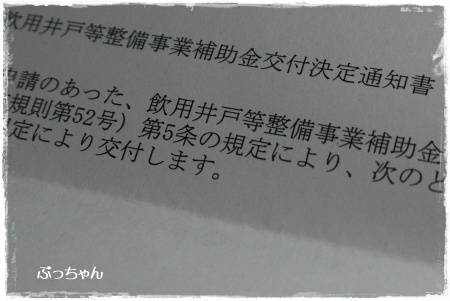 飲用井戸等整備事業補助金交付決定通知書
申請のあった、飲用井戸等整備事業補助金
規則第52号）第5条の規定により、次のと
定により交付します。
ぷっちゃん